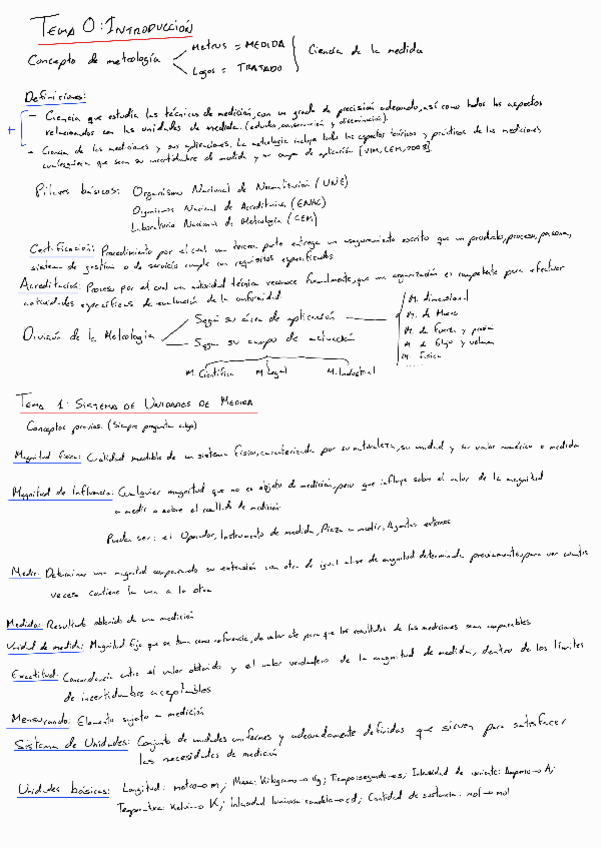 TEMA 0: INTRODUCCIÓN
Concepto de metrología
Metrus = MEDIDA
Logos = TRATADO
Ciencia de la medida
Definiciones:
- Ciencia que estudia las técnicas de medición, con un grado de precisión adecuado, así como todos los aspectos
relacionados con las unidades de medida. (estudio, conservación y diseminación).
+
- Ciencia de las mediciones y sus aplicaciones. La metrología incluye todos los aspectos teóricos y prácticos de las mediciones
cualesquiera que sean su incertidumbre de medida y su campo de aplicación [VIM, CEM, 2008].
Pilares básicos: Organismo Nacional de Normalización (UNE)
Organismo Nacional de Acreditación (ENAC)
Laboratorio Nacional de Metrología (CEM)
Certificación: Procedimiento por el cual una tercera parte entrega un aseguramiento escrito que un producto, proceso, persona,
sistema de gestión o de servicio cumple con requisitos especificados
Acreditación: Proceso por el cual una autoridad técnica reconoce formalmente, que una organización es competente para efectuar
actividades específicas de evaluación de la conformidad
División de la Metrología
Según su área de aplicación
Según su campo de actuación
M. dimensional
M. de Masa
M. de Fuerza y presión
M. de Flujo y volumen
M. Física
.....
M. Científica M. Legal M. Industrial
TEMA 1: SISTEMA DE UNIDADES DE MEDIDA
Conceptos previos. (Siempre pregunta algo)
Magnitud física: Cualidad medible de un sistema físico, caracterizada por su naturaleza, su unidad y su valor numérico o medida
Magnitud de Influencia: Cualquier magnitud que no es objeto de medición, pero que influye sobre el valor de la magnitud
a medir o sobre el resultado de medición
Pueden ser: el Operador, Instrumento de medida, Pieza a medir, Agentes externos
Medir: Determinar una magnitud comparando su extensión con otra de igual clase de magnitud determinada previamente, para ver cuantas
veces contiene la una a la otra
Medida: Resultado obtenido de una medición
Unidad de medida: Magnitud fija que se toma como referencia, de valor cte para que los resultados de las mediciones sean comparables
Exactitud: Concordancia entre el valor obtenido y el valor verdadero de la magnitud de medida, dentro de los límites
de incertidumbre aceptables
Mensurando: Elemento sujeto a medición
Sistema de Unidades: Conjunto de unidades uniformes y adecuadamente definidas que sirven para satisfacer
las necesidades de medición
Unidades básicas: Longitud: metro→m; Masa: Kilogramo→Kg; Tiempo: segundo→s; Intensidad de corriente: Amperio→A;
Temperatura: Kelvin→K; Intensidad luminosa candela→cd; Cantidad de sustancia: mol→mol